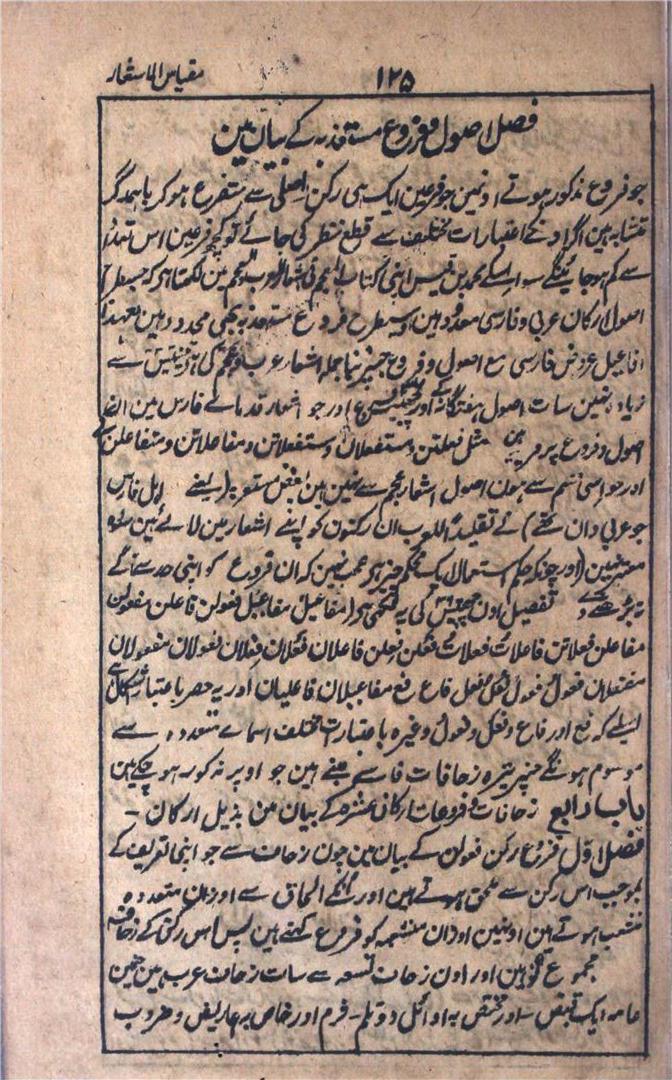 ۱۲۵ مقیاس الاشعار
فصل اصول و فروع مستعذبہ کے بیان مین
جو فروع مذکور ہوتے اونمین جو فرعین ایک ہی رکن اصلی سے متفرع ہو کر باہمدگر
متشابہ ہین اگر اونکے اعتبارات مختلف سے قطع نظر کی جائے تو کچھ فرعین اس تعداد
سے کم ہو جائینگے محمد بن قیس اپنی کتاب المعجم فی اشعار العجم مین لکھتا ہی کہ جسطرح
اصول ارکان عربی و فارسی معدود ہین اوسیطرح فروع مستعذبہ بھی محدود ہین
افاعیل عروض فارسی مع اصول و فروع جنپر بنا جملہ اشعار عرب و عجم کی ہے سے
زیادہ نہین سات اصول ہفتگانہ اور فرع اور جو اشعار قدمائے فارس مین ان
اصول و فروع پر مین مثل فعلتن و مستفعلان و مستفعلاتن و مفاعلاتن و متفاعلن کے
اور جو اسی قسم سے ہون اصول اشعار عجم سے نہین ہین بعض مستعربہ (یعنے اہل فارس
جو عربی دان تھے) نے تقلید العرب ان رکنون کو اپنے اشعار مین لائے ہین سو وہ
معتبر نہین (اور چونکہ حکم استعمال ایک محکم چیز ہے عجب نہین کہ ان فروع کو اپنی حد سے آگے
نہ بڑھنے دے) تفصیل اون کی یہ لکھی ہی (مفاعیلن مفاعیل فعولن فاعلن مفعولن
مفاعلن فعلاتن فاعلات فعلات فعلن فعلن فاعلان فعلان فعلان فعولان مفعولان
مفتعلان فعول فعول فعل فعل فاع فع مفاعیلان فاعلیان اور یہ حصر باعتبار اشکال ہے
اسلیے کہ فع اور فاع و فعل و فعول وغیرہ باعتبارات مختلف اسماے متعددہ سے
موسوم ہونگے جنپر تیرہ زحافات فارسے مبنے ہین جو اوپر مذکور ہو چکے ہین
باب رابع زحافات و فروعات ارکان عشرہ کے بیان من بذیل ارکان -
فصل اول فروع رکن فعولن کے بیان مین جون زحاف سے جو اپنی تعریف کے
بموجب اس رکن سے ملحق ہوتے ہین اور انکے الحاق سے اوزان متعددہ
منشعب ہوتے ہین اونہین اوزان منشعبہ کو فروع کہتے ہین پس اس رکن کے زحاف
مجموع نو ہین اور اون زحاف تسعہ سے سات زحاف عرب ہین جنمین
عامہ ایک قبض - اور مختص بہ اوائل دو ثلم - خرم اور خاص بہ عاریض و ضروب